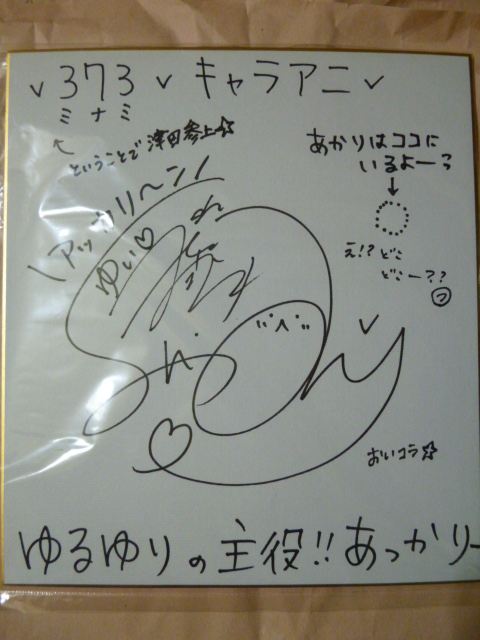 373 キャラアニ
ミナミ
ということで 津田参上☆
あかりはココに
いるよー?
え!? どこ
どこー??
\アッカリ~ン/
ゆい♡
おいコラ☆
ゆるゆりの主役!! あっかりー